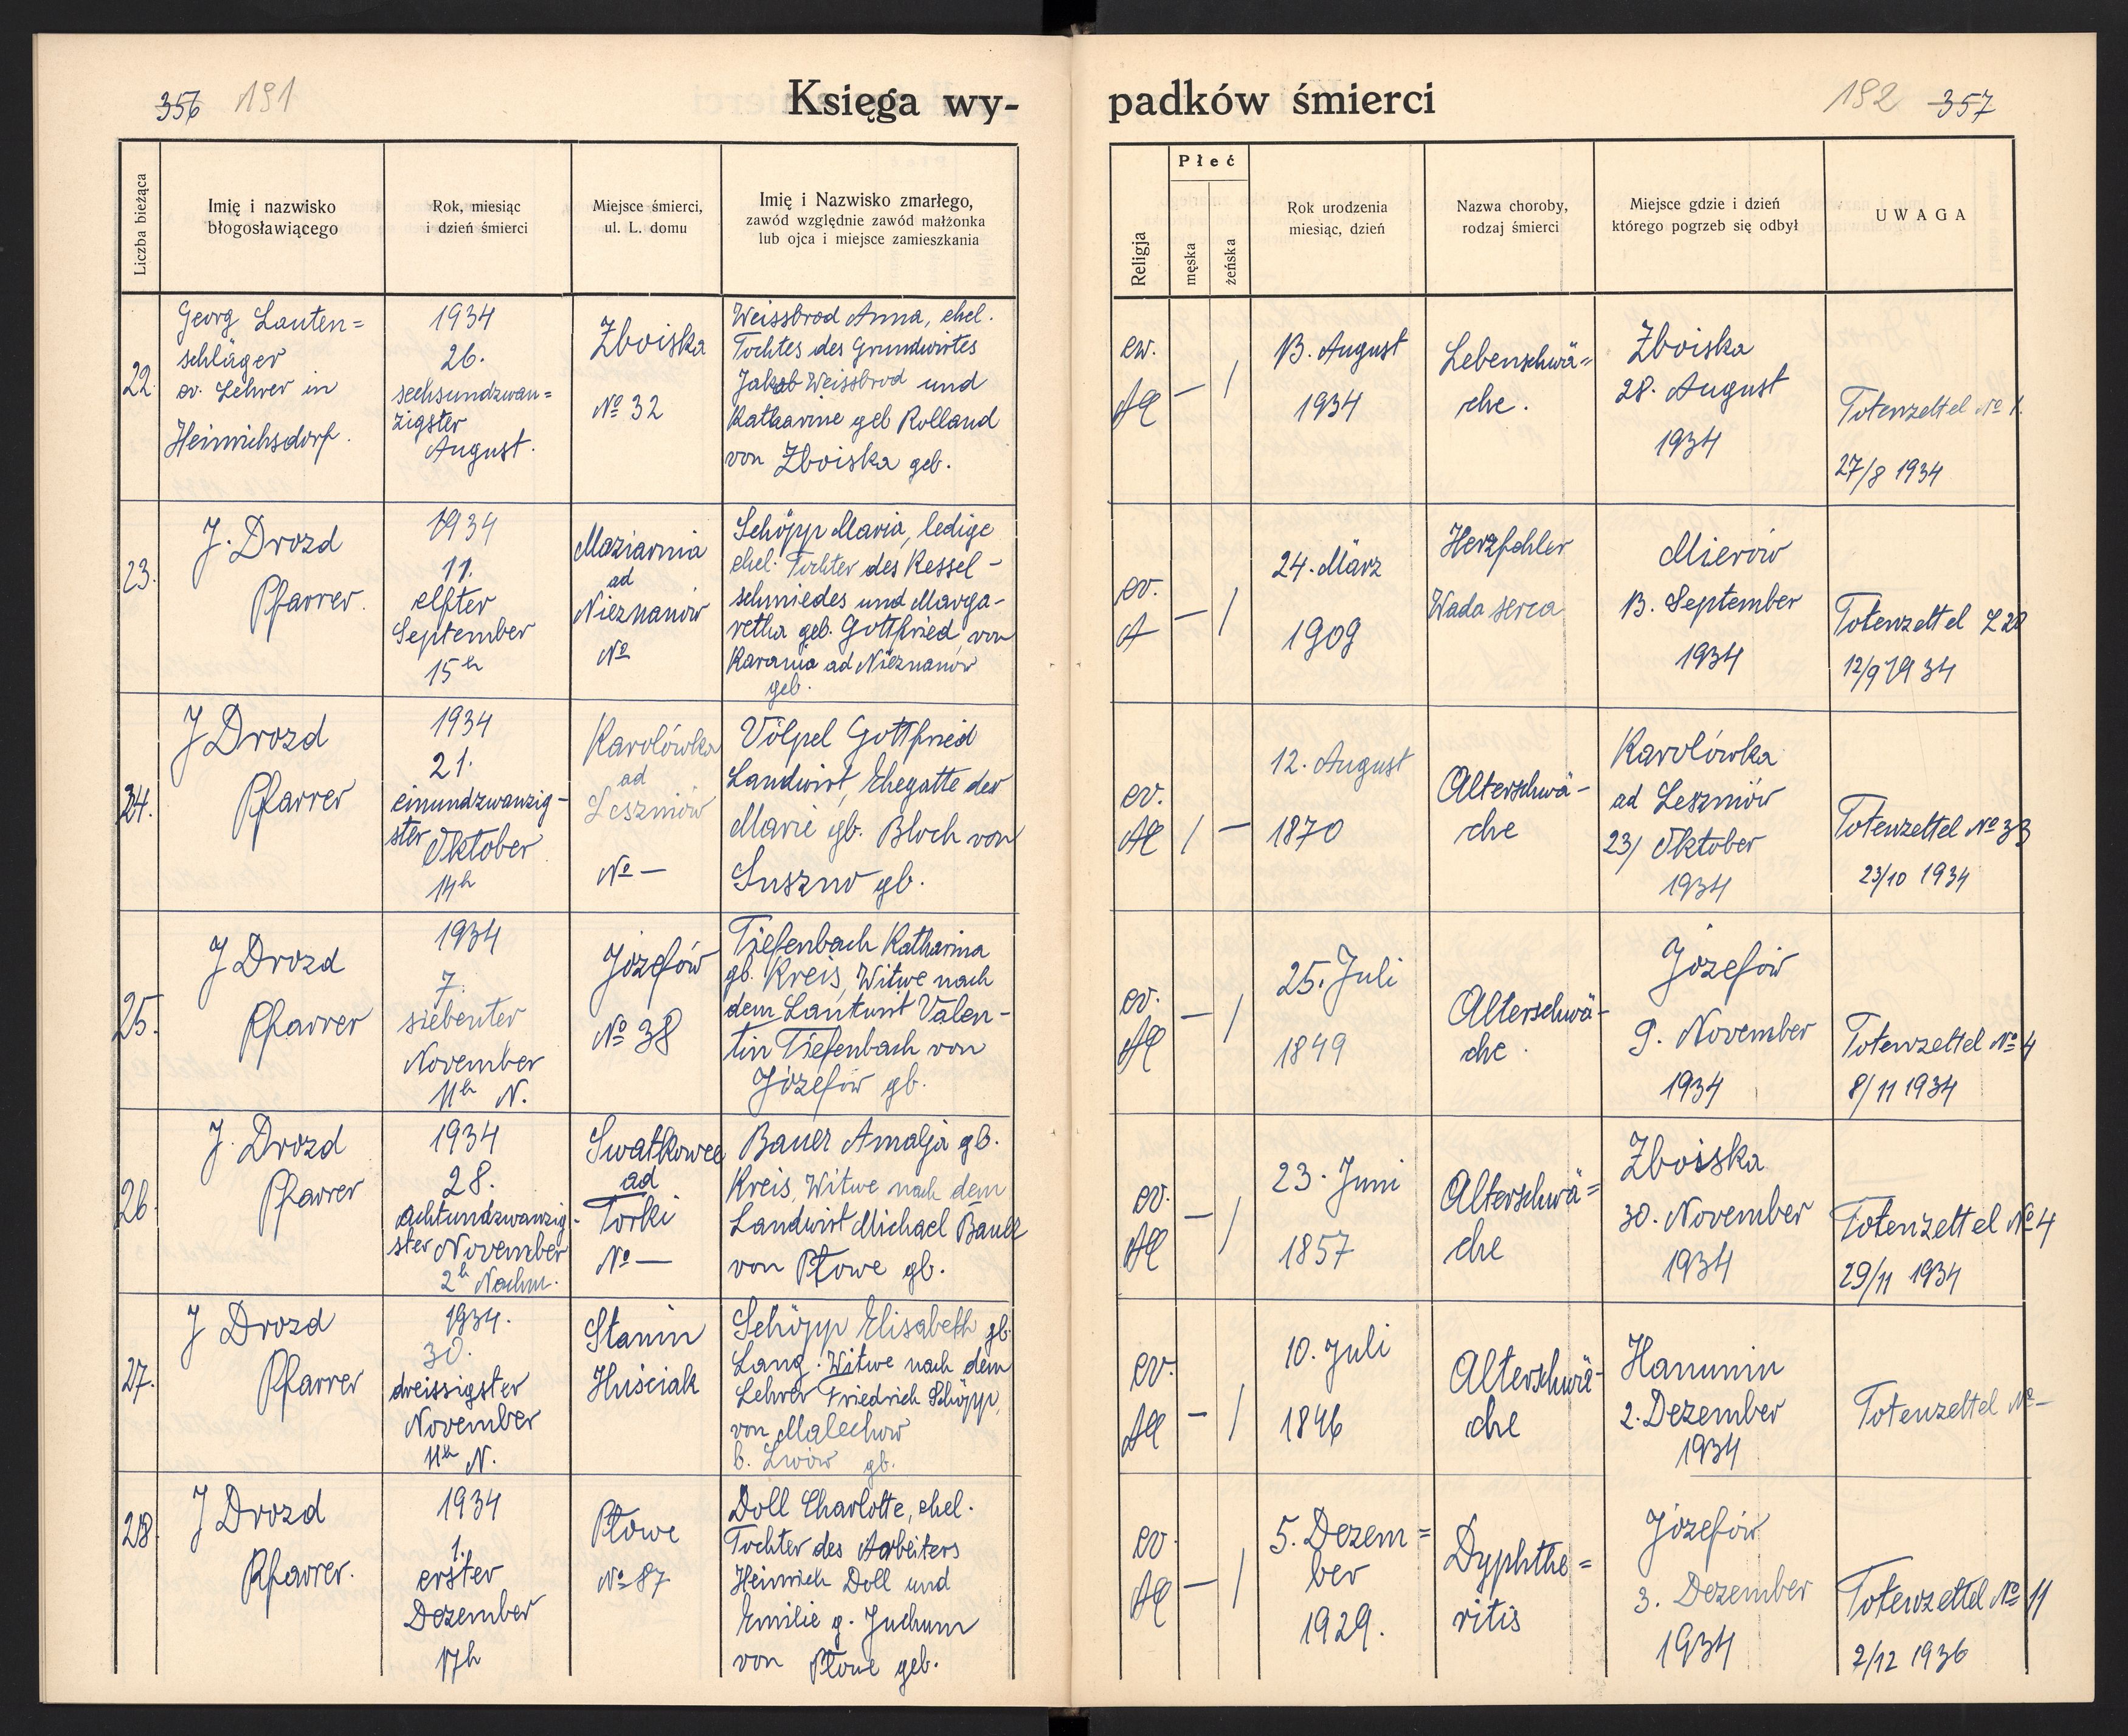 356 191
Księga wy-
padków śmierci
192 357
Liczba bieżąca
Imię i nazwisko
błogosławiącego
Rok, miesiąc
i dzień śmierci
Miejsce śmierci,
ul. L. domu
Imię i Nazwisko zmarłego,
zawód względnie zawód małżonka
lub ojca i miejsce zamieszkania
Religja
Płeć
męska
żeńska
Rok urodzenia
miesiąc, dzień
Nazwa choroby,
rodzaj śmierci
Miejsce gdzie i dzień
którego pogrzeb się odbył
UWAGA
22.
Georg Lauten=
schläger
ev. Lehrer in
Heinrichsdorf.
1934
26.
sechsundzwan=
zigster
August.
Zboiska
№ 32
Weissbrod Anna, ehel.
Tochtes des Grundwirtes
Jakob Weissbrod und
Katharine geb Rolland
von Zboiska geb.
ew.
AC
— /
13. August
1934
Lebenschwä=
che.
Zboiska
28. August
1934
Totenzettel № 1.
27/8 1934
23.
J. Drozd
Pfarrer.
1934
11.
elfter
September
15h
Maziarnia
ad
Nieznanów
№
Schöpp Maria, ledige
ehel. Tochter des Kessel-
schmiedes und Marga-
retha geb. Gottfried von
Karania ad Nieznanów
geb.
ev.
A
— /
24. März
1909
Herzfehler
Wada serca
Mierów
13. September
1934
Totenzettel L 20
12/9 1934
24.
J Drozd
Pfarrer
1934
21.
einundzwanzig-
ster Oktober
14h
Karolówka
ad
Leszniów
№ —
Völpel Gottfried
Landwirt, Ehegatte der
Marie gb. Bloch von
Suszno gb.
ev.
AC
/ —
12. August
1870
Alterschwä-
che
Karolówka
ad Leszniów
23/ Oktober
1934
Totenzettel № 33
23/10 1934
25.
J Drozd
Pfarrer
1934
7.
siebenter
November
11h N.
Józefów
№ 38
Tiefenbach Katharina
gb. Kreis, Witwe nach
dem Lantwirt Valen-
tin Tiefenbach von
Józefów gb.
ev.
AC
— /
25. Juli
1849
Alterschwä-
che.
Józefów
9. November
1934
Totenzettel № 4
8/11 1934
26.
J. Drozd
Pfarrer
1934
28.
achtundzwanzig-
ster November
2h Nachm.
Swatkowce
ad
Torki
№ —
Bauer Amalja gb.
Kreis, Witwe nach dem
Landwirt Michael Bauer
von Płowe gb.
ev.
AC
— /
23. Juni
1857
Alterschwä=
che
Zboiska
30. November
1934
Totenzettel № 4
29/11 1934
27.
J Drozd
Pfarrer
1934.
30.
dreissigster
November
11h N.
Stanin
Huściak
Schöpp Elisabeth gb.
Lang. Witwe nach dem
Lehrer Friedrich Schöpp,
von Malechow
b. Lwów gb.
ev.
AC
— /
10. Juli
1846
Alterschwä-
che
Hanunin
2. Dezember
1934
Totenzettel №—
28.
J Drozd
Pfarrer.
1934
1.
erster
Dezember
17h
Płowe
№ 87
Doll Charlotte, ehel.
Tochter des Arbeiters
Heinrich Doll und
Emilie g. Juchum
von Płowe geb.
ev.
AC
— /
5. Dezem=
ber
1929.
Dyphthe=
ritis
Józefów
3. Dezember
1934
Totenzettel № 11
2/12 1936